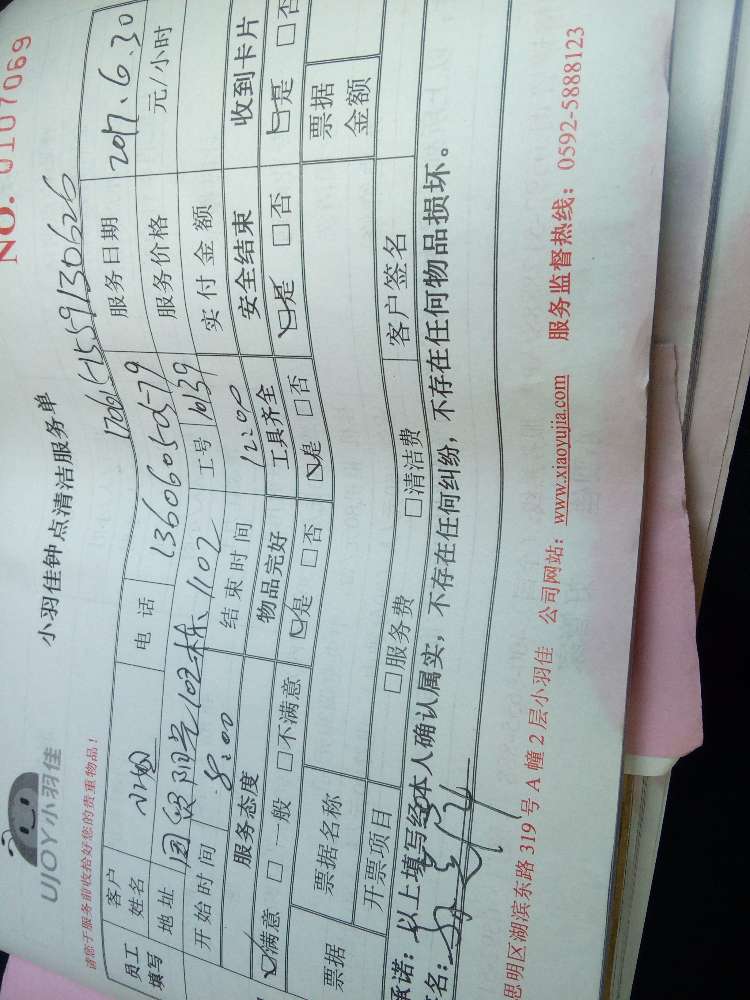 NO. 0107069
小羽佳钟点清洁服务单
UJOY小羽佳
请您于服务前收拾好您的贵重物品！
1559130626
员工填写
客户姓名 电话 13606050579 服务日期 2017.6.30
地址 国贸阳光102栋1102 工号 服务价格 元/小时
开始时间 8:00 结束时间 12:00 实付金额
服务态度 物品完好 工具齐全 安全结束 收到卡片
☑满意 □一般 □不满意 ☑是 □否 ☑是 □否 ☑是 □否 ☑是 □否
票据 票据名称 票据金额
开票项目 □服务费 □清洁费 客户签名
承诺：以上填写经本人确认属实，不存在任何纠纷，不存在任何物品损坏。
签名：
思明区湖滨东路319号A幢2层小羽佳 公司网站：www.xiaoyujia.com 服务监督热线：0592-5888123